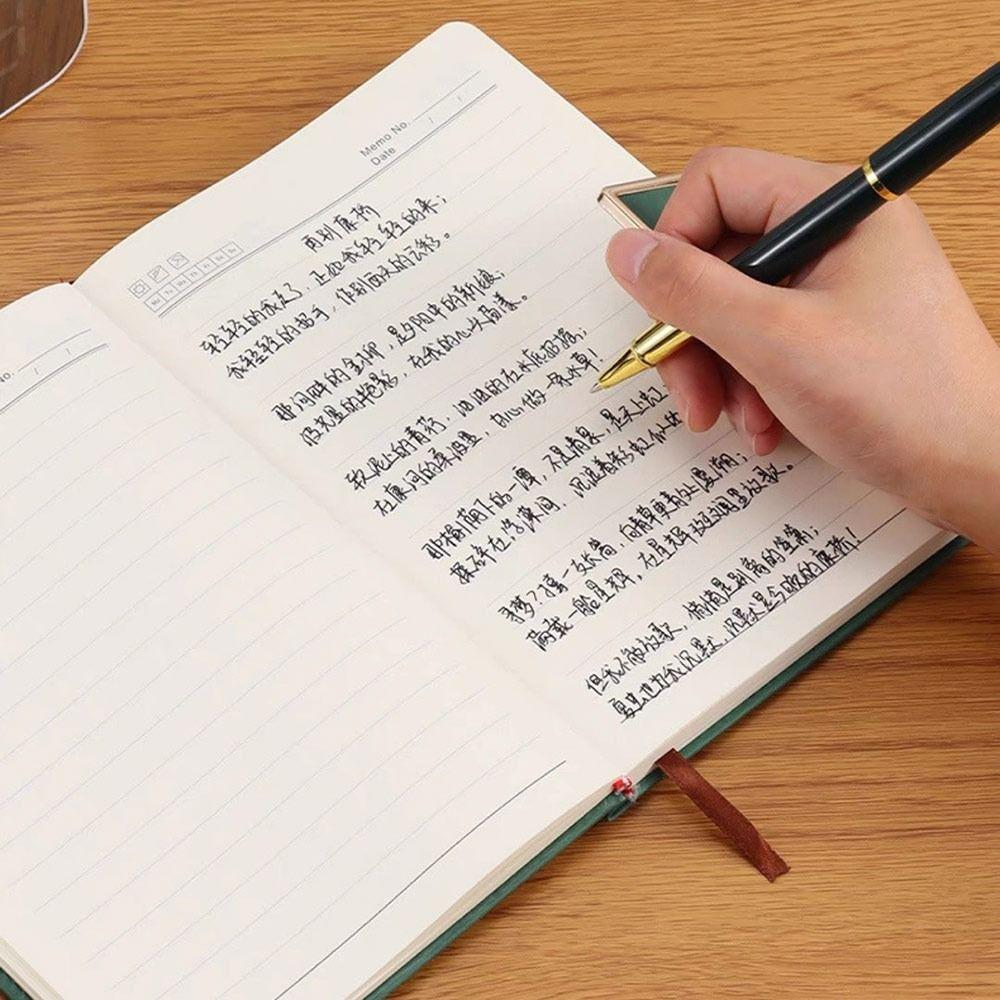 Memo No.
Date / /
Mo Tu We Th Fr Sa Su
再别康桥
轻轻的我走了，正如我轻轻的来；
我轻轻的招手，作别西天的云彩。
那河畔的金柳，是夕阳中的新娘；
波光里的艳影，在我的心头荡漾。
软泥上的青荇，油油的在水底招摇；
在康河的柔波里，甘心做一条水草！
那榆荫下的一潭，不是清泉，是天上虹
揉碎在浮藻间，沉淀着彩虹似的
寻梦？撑一支长篙，向青草更青处漫溯；
满载一船星辉，在星辉斑斓里放歌。
但我不能放歌，悄悄是别离的笙箫；
夏虫也为我沉默，沉默是今晚的康桥！
No. / /